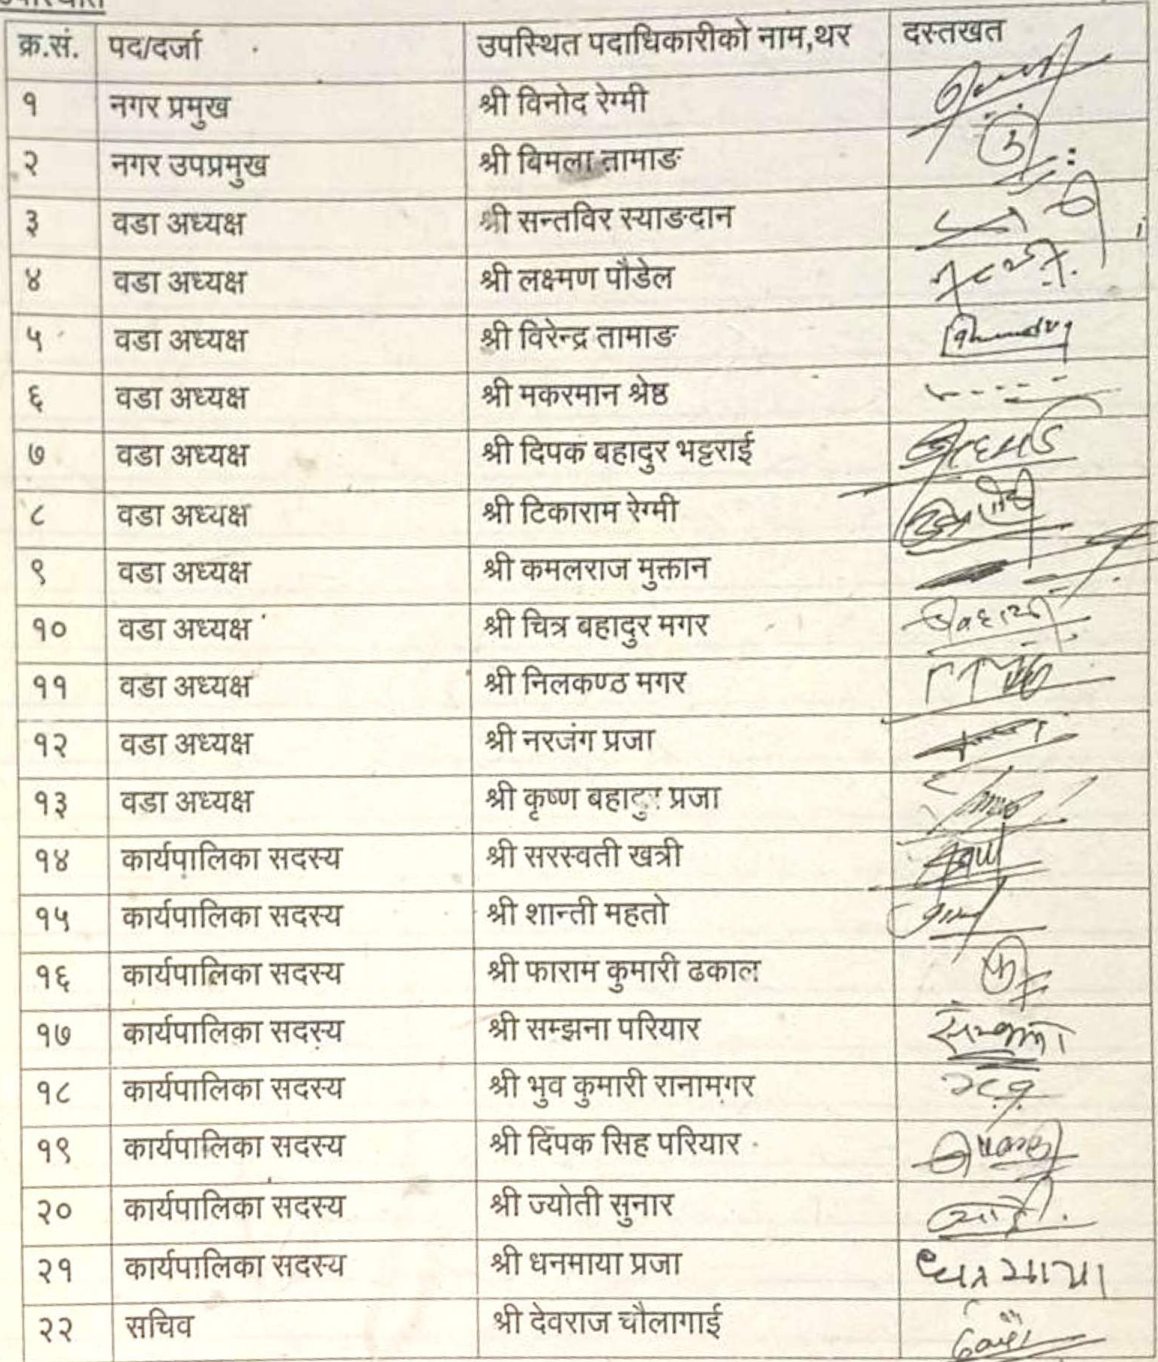 उपस्थिति
क्र.सं. पद/दर्जा उपस्थित पदाधिकारीको नाम,थर दस्तखत
१ नगर प्रमुख श्री विनोद रेग्मी
२ नगर उपप्रमुख श्री बिमला तामाङ
३ वडा अध्यक्ष श्री सन्तविर स्याङदान
४ वडा अध्यक्ष श्री लक्ष्मण पौडेल
५ वडा अध्यक्ष श्री विरेन्द्र तामाङ
६ वडा अध्यक्ष श्री मकरमान श्रेष्ठ
७ वडा अध्यक्ष श्री दिपक बहादुर भट्टराई
८ वडा अध्यक्ष श्री टिकाराम रेग्मी
९ वडा अध्यक्ष श्री कमलराज मुक्तान
१० वडा अध्यक्ष श्री चित्र बहादुर मगर
११ वडा अध्यक्ष श्री निलकण्ठ मगर
१२ वडा अध्यक्ष श्री नरजंग प्रजा
१३ वडा अध्यक्ष श्री कृष्ण बहादुर प्रजा
१४ कार्यपालिका सदस्य श्री सरस्वती खत्री
१५ कार्यपालिका सदस्य श्री शान्ती महतो
१६ कार्यपालिका सदस्य श्री फाराम कुमारी ढकाल
१७ कार्यपालिका सदस्य श्री सम्झना परियार सम्झना
१८ कार्यपालिका सदस्य श्री भुव कुमारी रानामगर
१९ कार्यपालिका सदस्य श्री दिपक सिह परियार
२० कार्यपालिका सदस्य श्री ज्योती सुनार
२१ कार्यपालिका सदस्य श्री धनमाया प्रजा धनमाया
२२ सचिव श्री देवराज चौलागाई